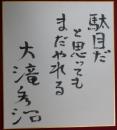 駄目だ
と思っても
まだやれる
大滝秀治